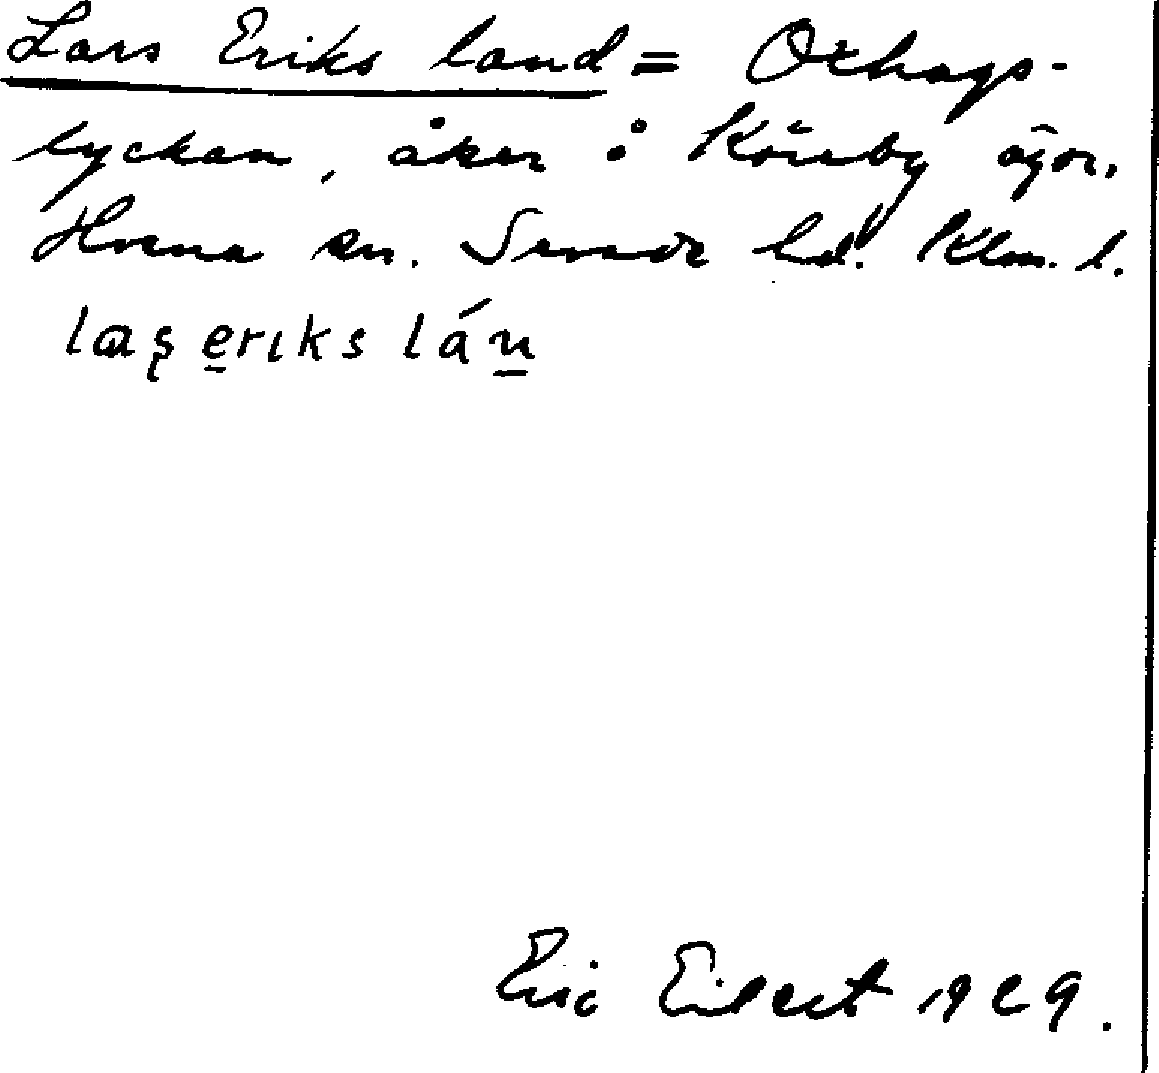 Lars Eriks land = Oxhags-
lyckan, åker å Köreby ägor.
Horna sn. Sevede hd. Klm. l.
laʂ e̱rıks láṉ
Eric Eilert 1929.